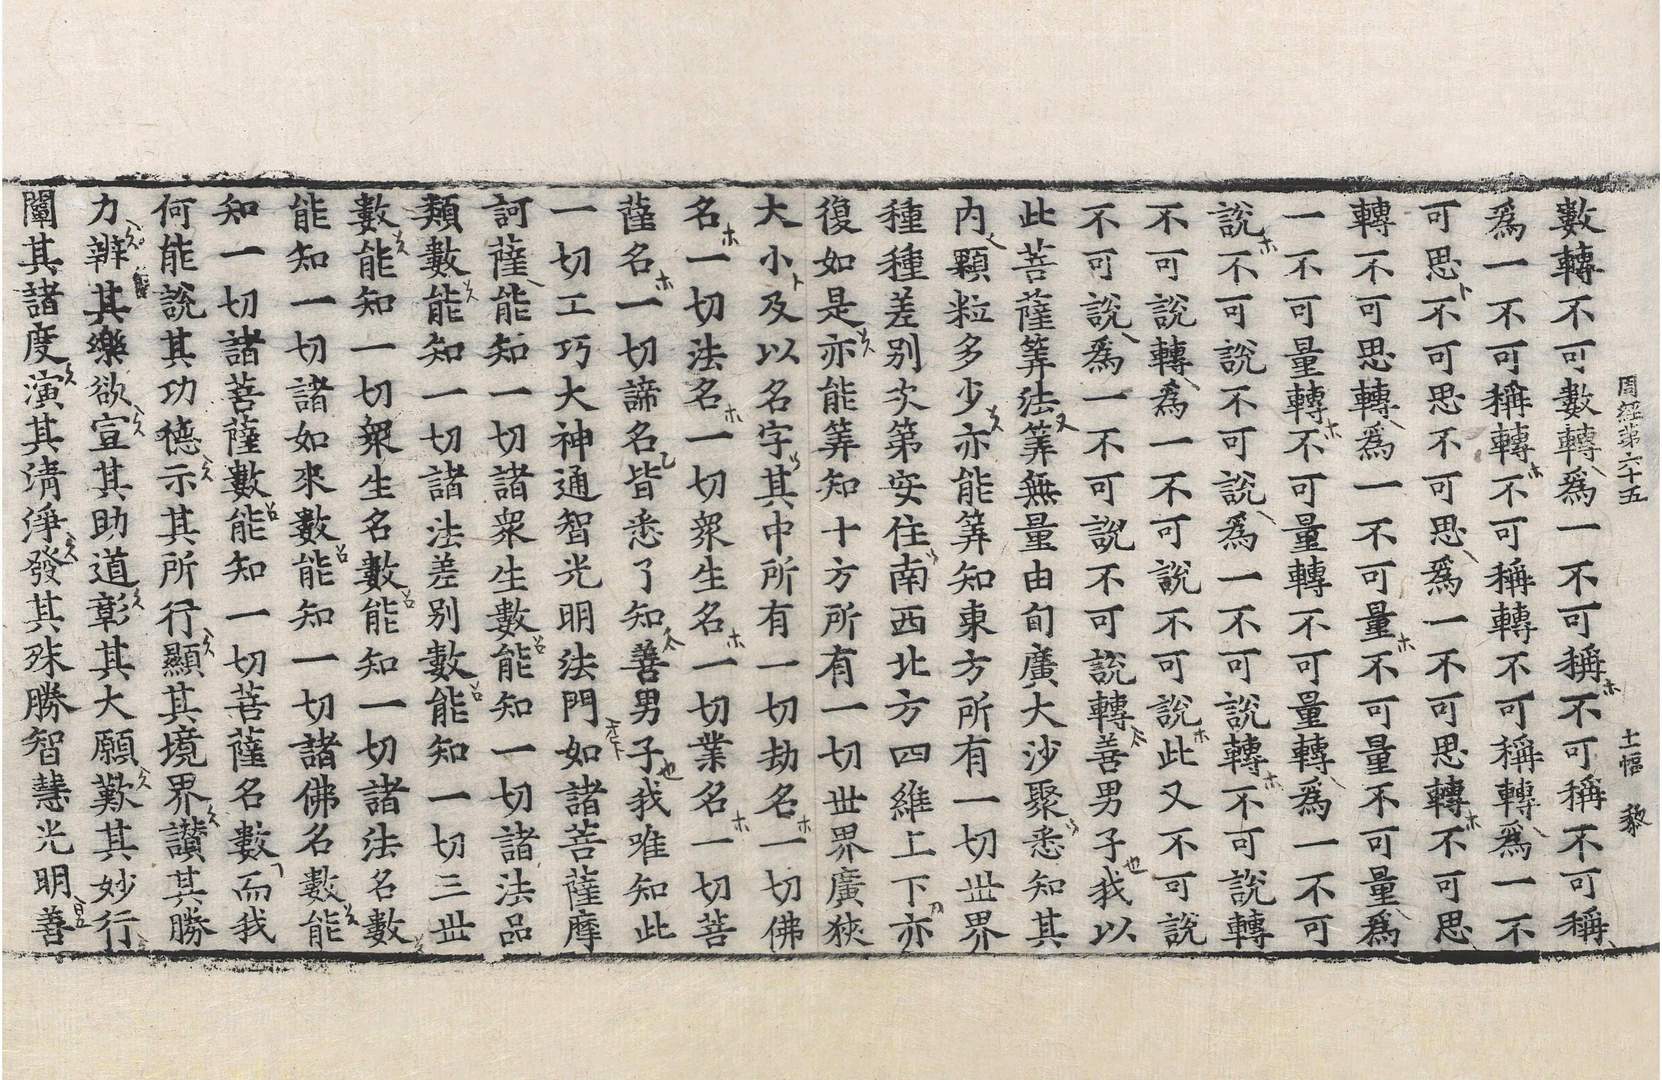 周經第六十五 十一幅 黎
數轉不可數轉爲一不可稱不可稱不可稱
爲一不可稱轉不可稱轉不可稱轉爲一不
可思不可思不可思爲一不可思轉不可思
轉不可思轉爲一不可量不可量不可量爲
一不可量轉不可量轉不可量轉爲一不可
說不可說不可說爲一不可說轉不可說轉
不可說轉爲一不可說不可說此又不可說
不可說爲一不可說不可說轉善男子我以
此菩薩筭法筭無量由旬廣大沙聚悉知其
內顆粒多少亦能筭知東方所有一切世界
種種差别次第安住南西北方四維上下亦
復如是亦能筭知十方所有一切世界廣狹
大小及以名字其中所有一切劫名一切佛
名一切法名一切衆生名一切業名一切菩
薩名一切諦名皆悉了知善男子我唯知此
一切工巧大神通智光明法門如諸菩薩摩
訶薩能知一切諸衆生數能知一切諸法品
類數能知一切諸法差别數能知一切三世
數能知一切衆生名數能知一切諸法名數
能知一切諸如來數能知一切諸佛名數能
知一切諸菩薩數能知一切菩薩名數而我
何能說其功德示其所行顯其境界讃其勝
力辨其樂欲宣其助道彰其大願歎其妙行
闡其諸度演其清淨發其殊勝智慧光明善